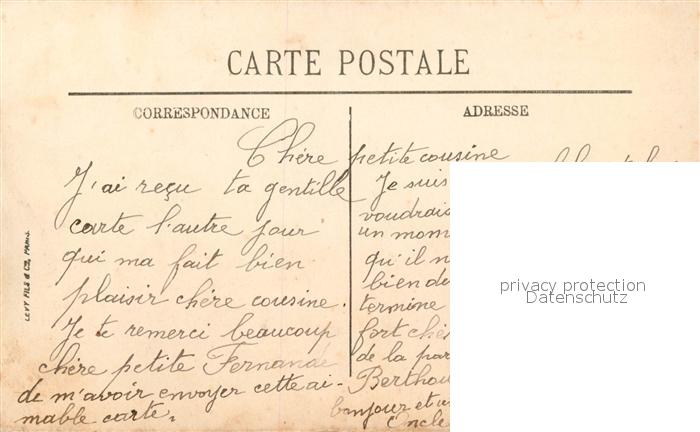 CARTE POSTALE
CORRESPONDANCE
ADRESSE
Chère petite cousine
J'ai reçu ta gentille
carte l'autre jour
qui ma fait bien
plaisir chère cousine.
Je te remerci beaucoup
chère petite Fernande
de m'avoir envoyer cette ai-
mable carte.
Je suis
voudrais
un mom
qu'il n
bien de
termine
fort chè
de la par
Berthou
bonjour et u
Oncle
LEVY FILS & CIE, PARIS.
privacy protection
Datenschutz